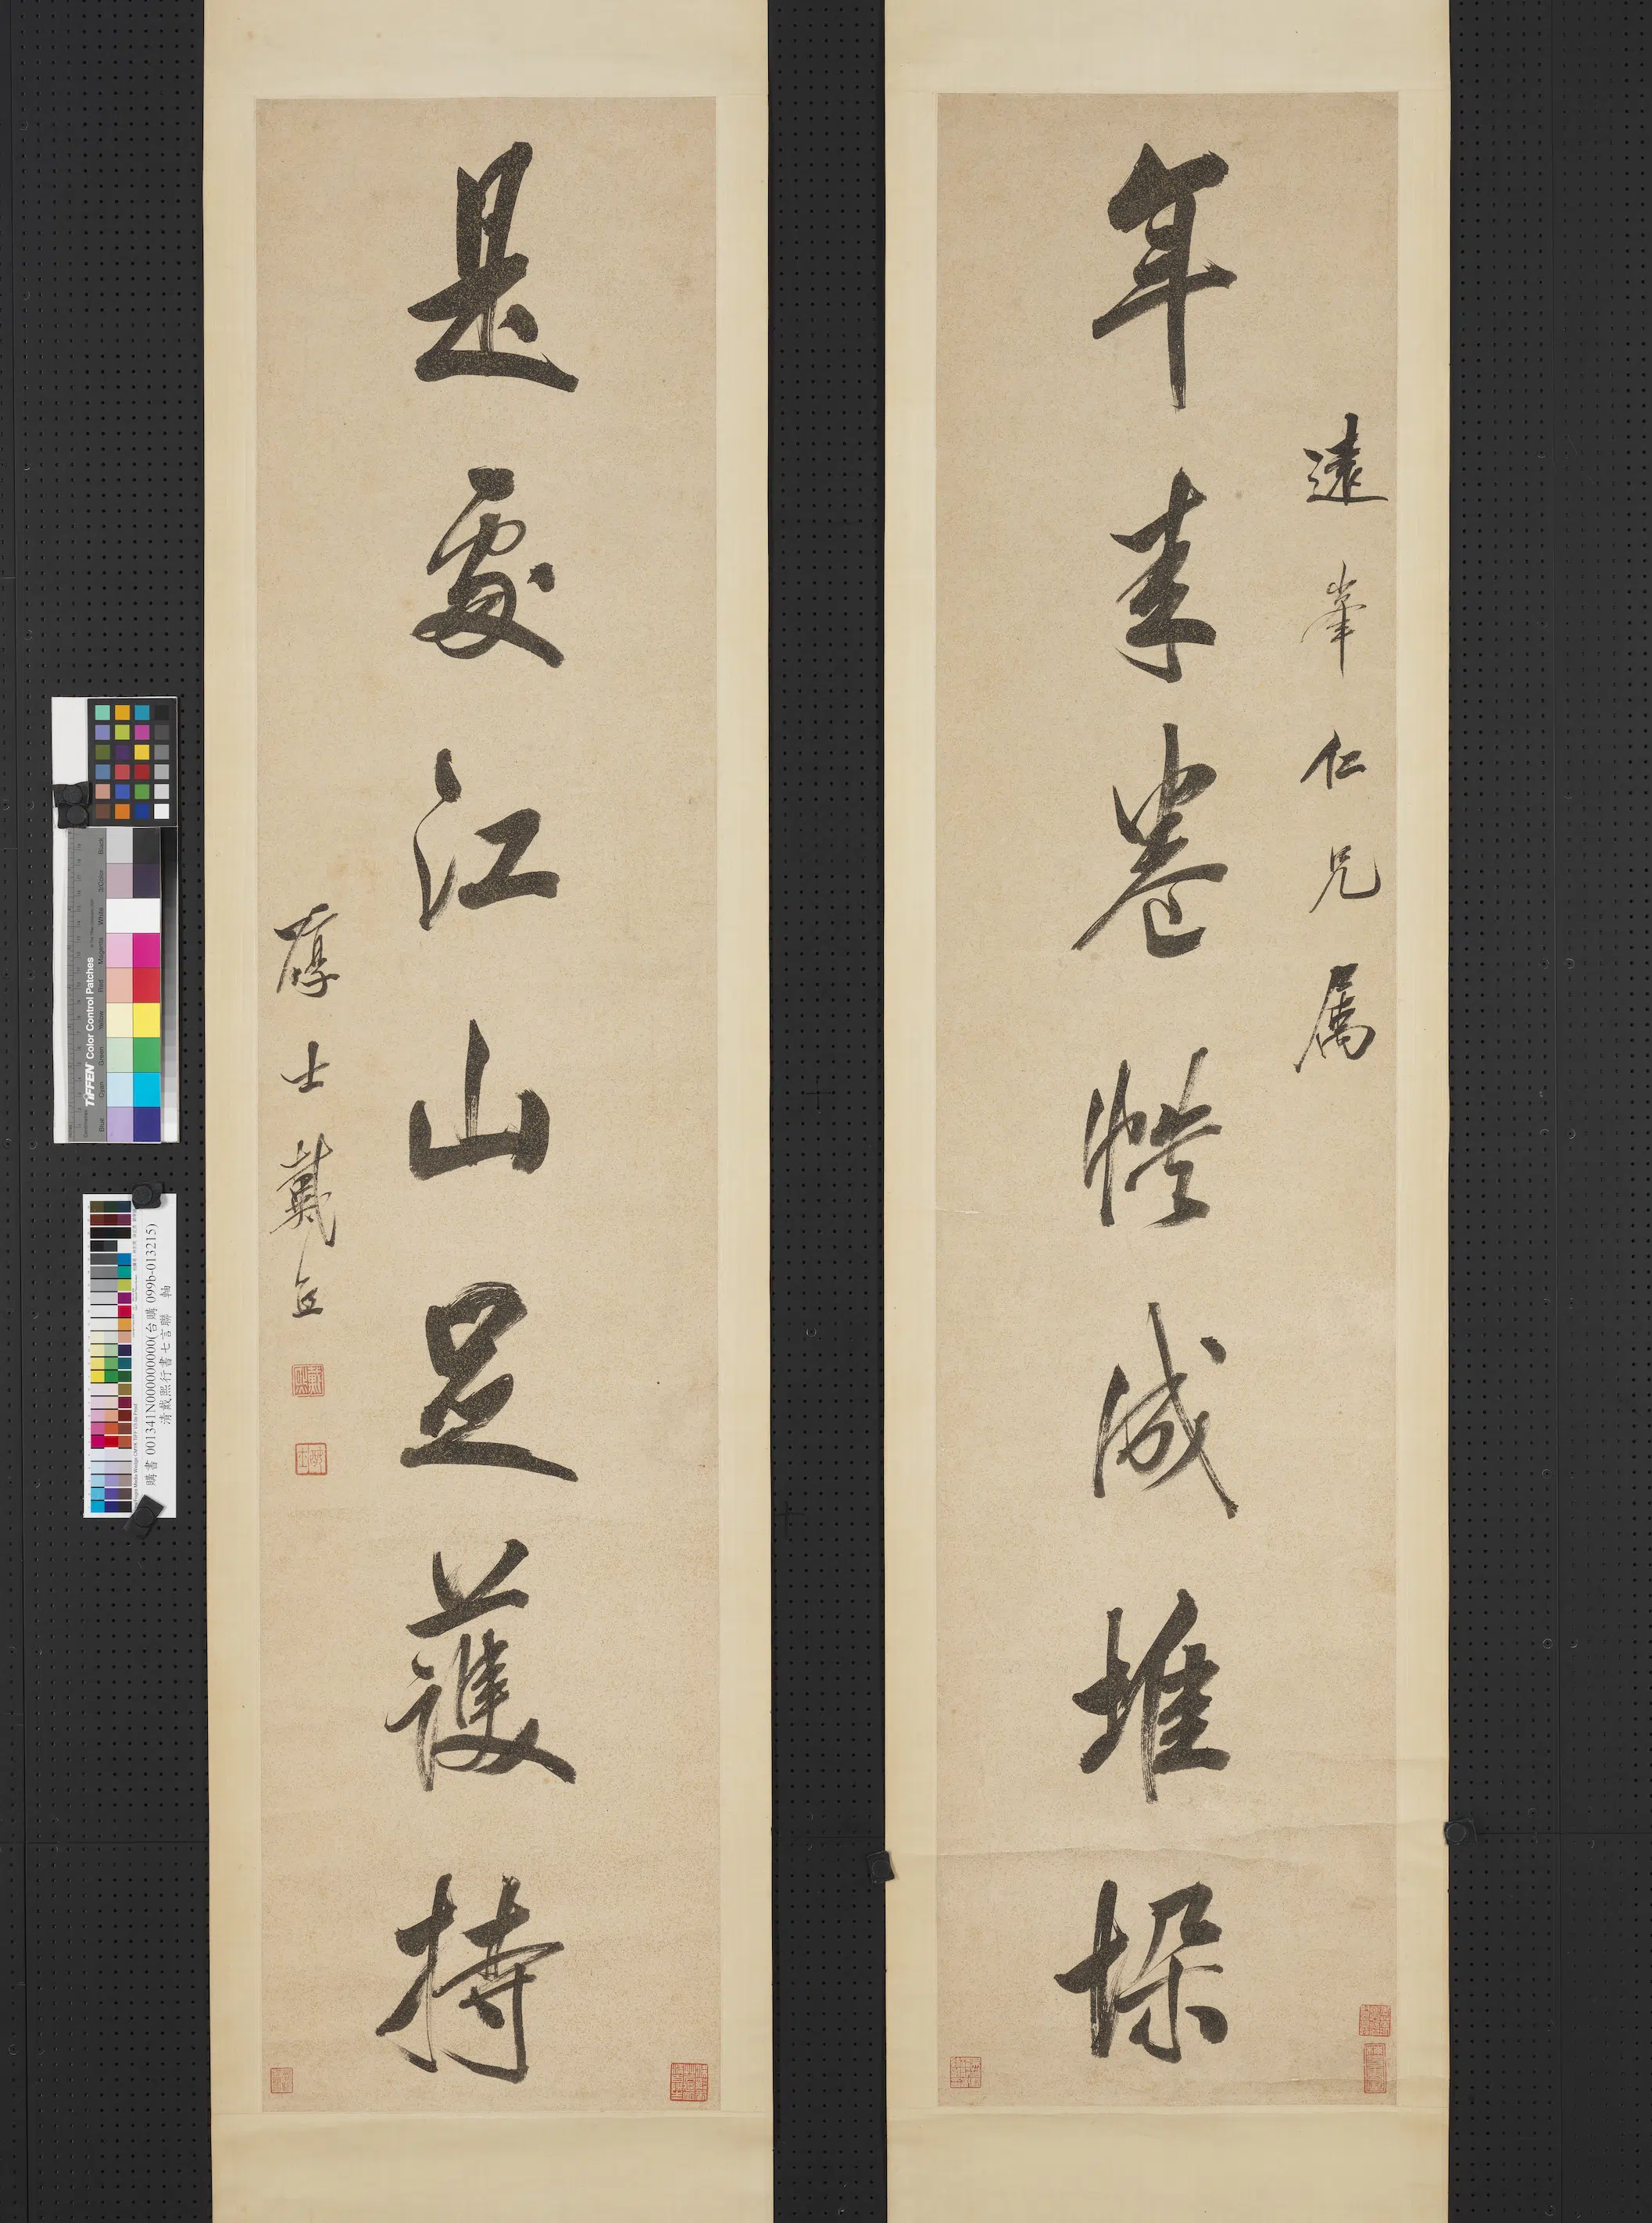 遠峯仁兄属
年來卷帙成堆垛
是處江山足護持
醇士戴熙
戴熙
醇士
TIFFEN Color Control Patches
Blue Cyan Green Yellow Red Magenta White 3/Color Black
購書 001341N000000000(台購 099b-013215)
清戴熙行書七言聯 軸